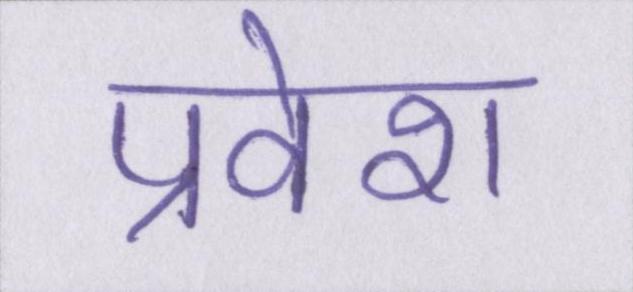 प्रवेश